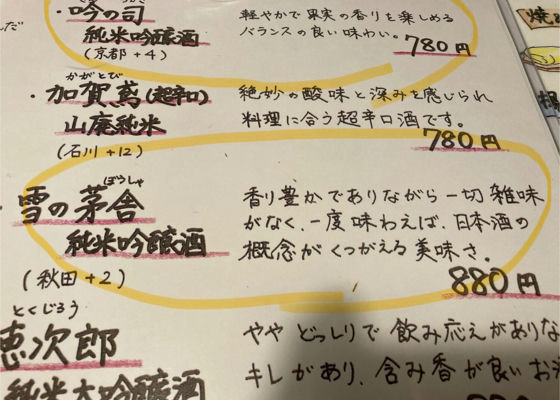 ・吟の司
純米吟醸酒
(京都+4)
軽やかで果実の香りを楽しめる
バランスの良い味わい。
780円
かがとび
・加賀鳶(超辛口)
山廃純米
(石川+12)
絶妙の酸味と深みを感じられ
料理に合う超辛口酒です。
780円
ぼうしゃ
・雪の茅舎
純米吟醸酒
(秋田+2)
香り豊かでありながら一切雑味
がなく、一度味わえば、日本酒の
概念がくつがえる美味さ。
880円
とくじろう
恵次郎
純米大吟醸酒
やや どっしりで 飲み応えがありな
キレがあり、含み香が良いお
焼